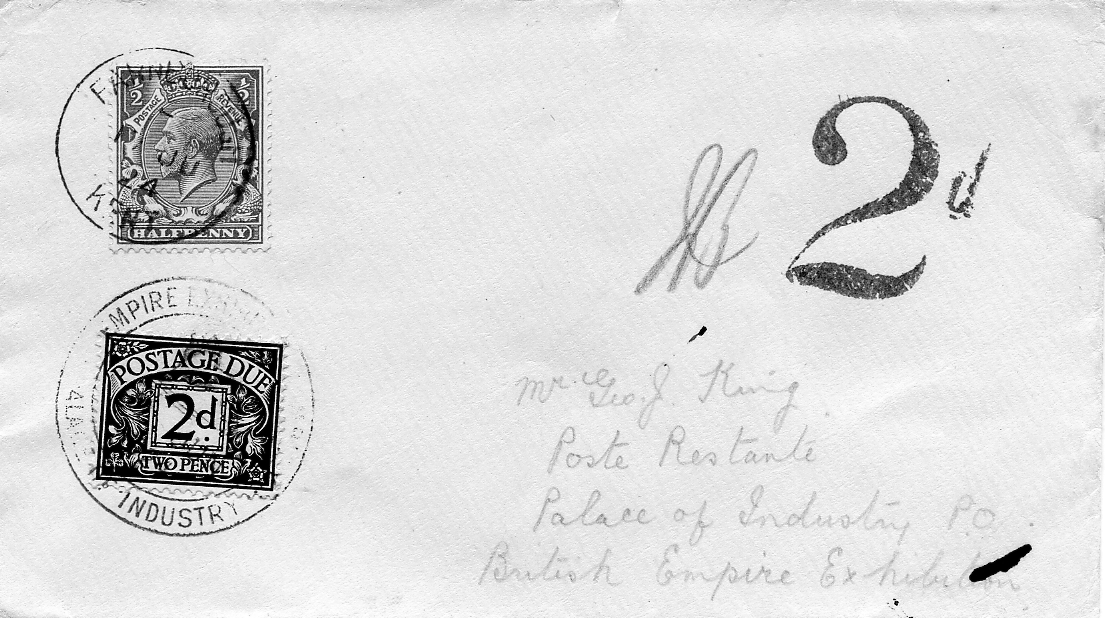 ½ ½
POSTAGE REVENUE
HALFPENNY
KENT
2d
EMPIRE
POSTAGE DUE
2d.
TWO PENCE
INDUSTRY
Mr Geo. J. King
Poste Restante
Palace of Industry P.O.
British Empire Exhibition